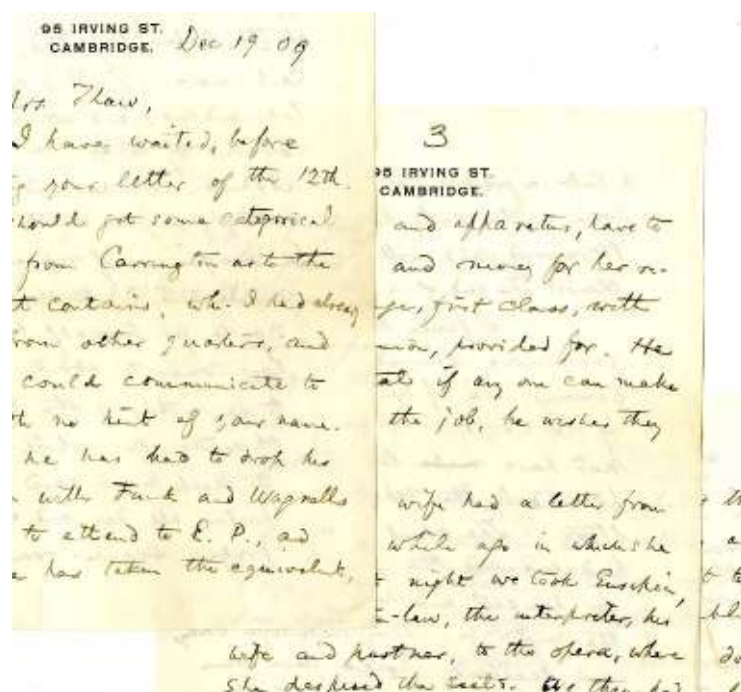 95 IRVING ST.
CAMBRIDGE.
Dec 19. 09
Mrs. Thaw,
I have waited, before
g your letter of the 12th.
should get some categorical
from Carrington as to the
t contains, wh. I had already
from other quarters, and
could communicate to
th no hint of your name.
he has had to drop his
with Funk and Wagnalls
to attend to E. P., and
e has taken the equivalent,
3
95 IRVING ST.
CAMBRIDGE.
and apparatus, have to
and money for her re-
first class, with
provided for. He
if any one can make
the job, he wishes they
wife had a letter from
while ago in which she
night we took Eusapia,
-law, the interpreter, his
wife and partner, to the opera, where
she despised the seats.